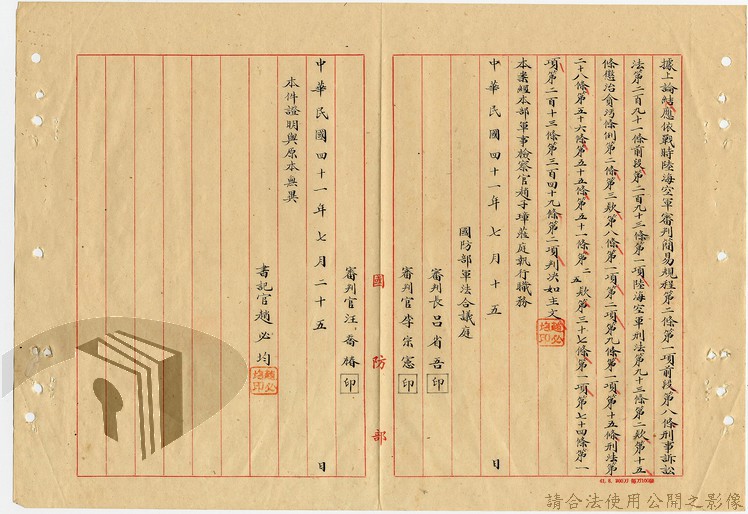 據上論結應依戰時陸海空軍審判簡易規程第二條第一項前段第八條刑事訴訟
法第二百九十一條前段第二百九十三條第一項陸海空軍刑法第九十三條第二款第十五
條懲治貪污條例第二條第三款第八條第一項第二項第九條第一項第十五條刑法第
二十八條第五十六條第五十五條第五十一條第二五款第三十七條第一項第七十四條第一
項第二百十三條第三百四十九條第二項判決如主文
趙必均印
本案經本部軍事檢察官趙子瑋蒞庭執行職務
中華民國四十一年七月十五日
國防部軍法合議庭
審判長呂省吾印
審判官李宗憲印
國防部
審判官汪番椿印
中華民國四十一年七月二十五日
本件證明與原本無異
書記官趙必均
趙必均印
請合法使用公開之影像